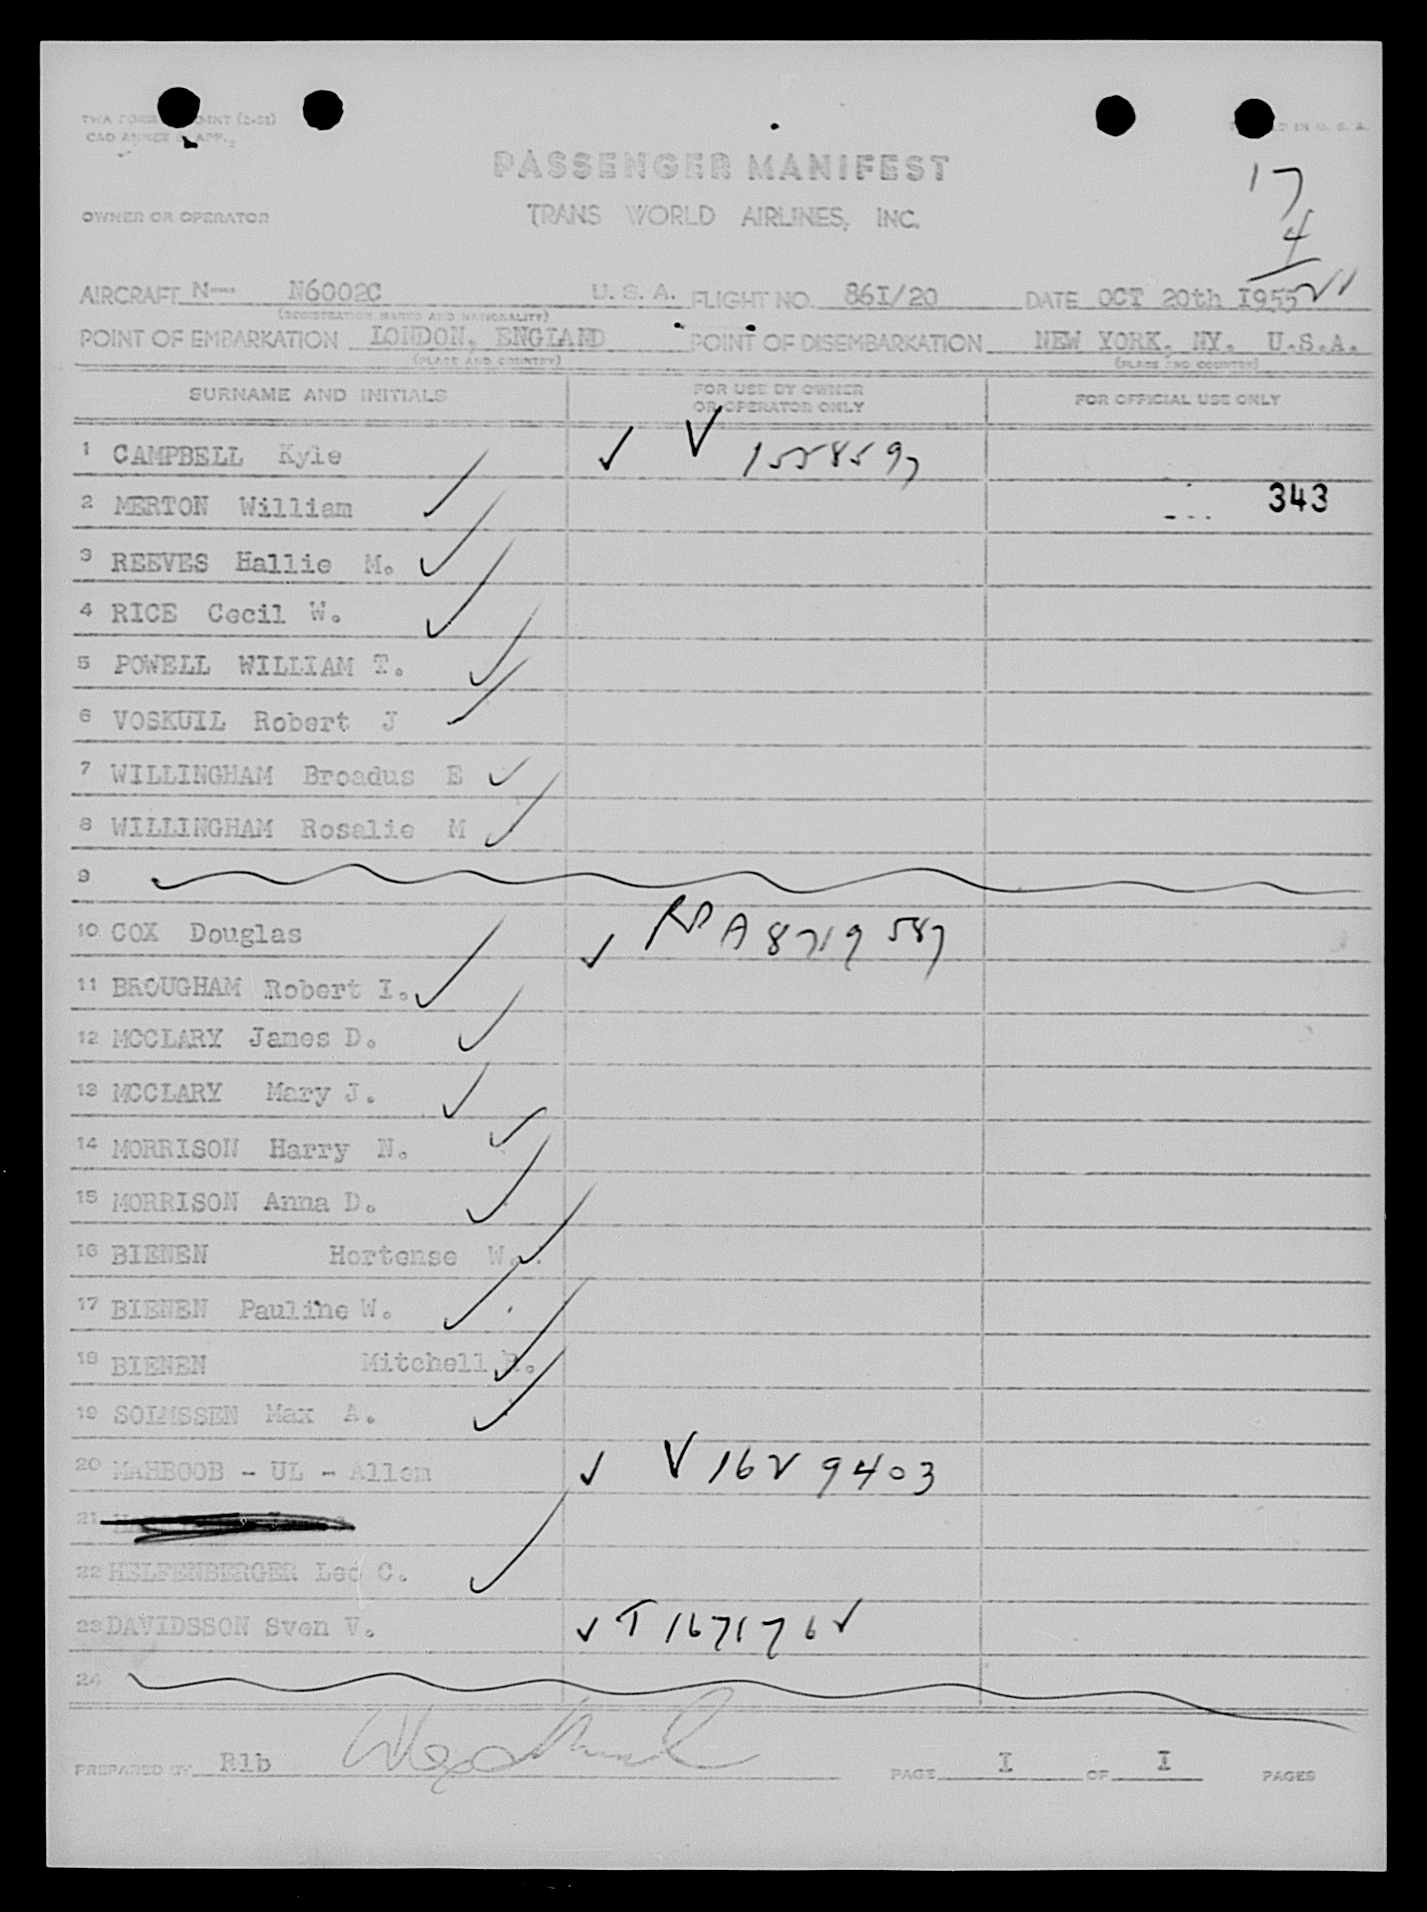 PASSENGER MANIFEST
17
OWNER OR OPERATOR TRANS WORLD AIRLINES, INC.
4
AIRCRAFT N--- N6002C U. S. A. FLIGHT NO. 861/20 DATE OCT 20th 1955
(REGISTRATION MARKS AND NATIONALITY)
POINT OF EMBARKATION LONDON, ENGLAND POINT OF DISEMBARKATION NEW YORK. NY. U.S.A.
(PLACE AND COUNTRY) (PLACE AND COUNTRY)
SURNAME AND INITIALS FOR USE BY OWNER OR OPERATOR ONLY FOR OFFICIAL USE ONLY
1 CAMPBELL Kyle ✓ V
2 MERTON William 343
3 REEVES Hallie M.
4 RICE Cecil W.
5 POWELL WILLIAM T.
6 VOSKUIL Robert J
7 WILLINGHAM Broadus E
8 WILLINGHAM Rosalie M
9
10 COX Douglas ✓ A8719587
11 BROUGHAM Robert I.
12 MCCLARY James D.
13 MCCLARY Mary J.
14 MORRISON Harry N.
15 MORRISON Anna D.
16 BIENEN Hortense W.
17 BIENEN Pauline W.
18 BIENEN Mitchell
19 SOLMSSEN Max A.
20 MAHBOOB - UL - Allem ✓ V1629403
21
22 HELFENBERGER Leo C.
23 DAVIDSSON Sven V. ✓ T1671762
24
PREPARED BY Rlb PAGE I OF I PAGES